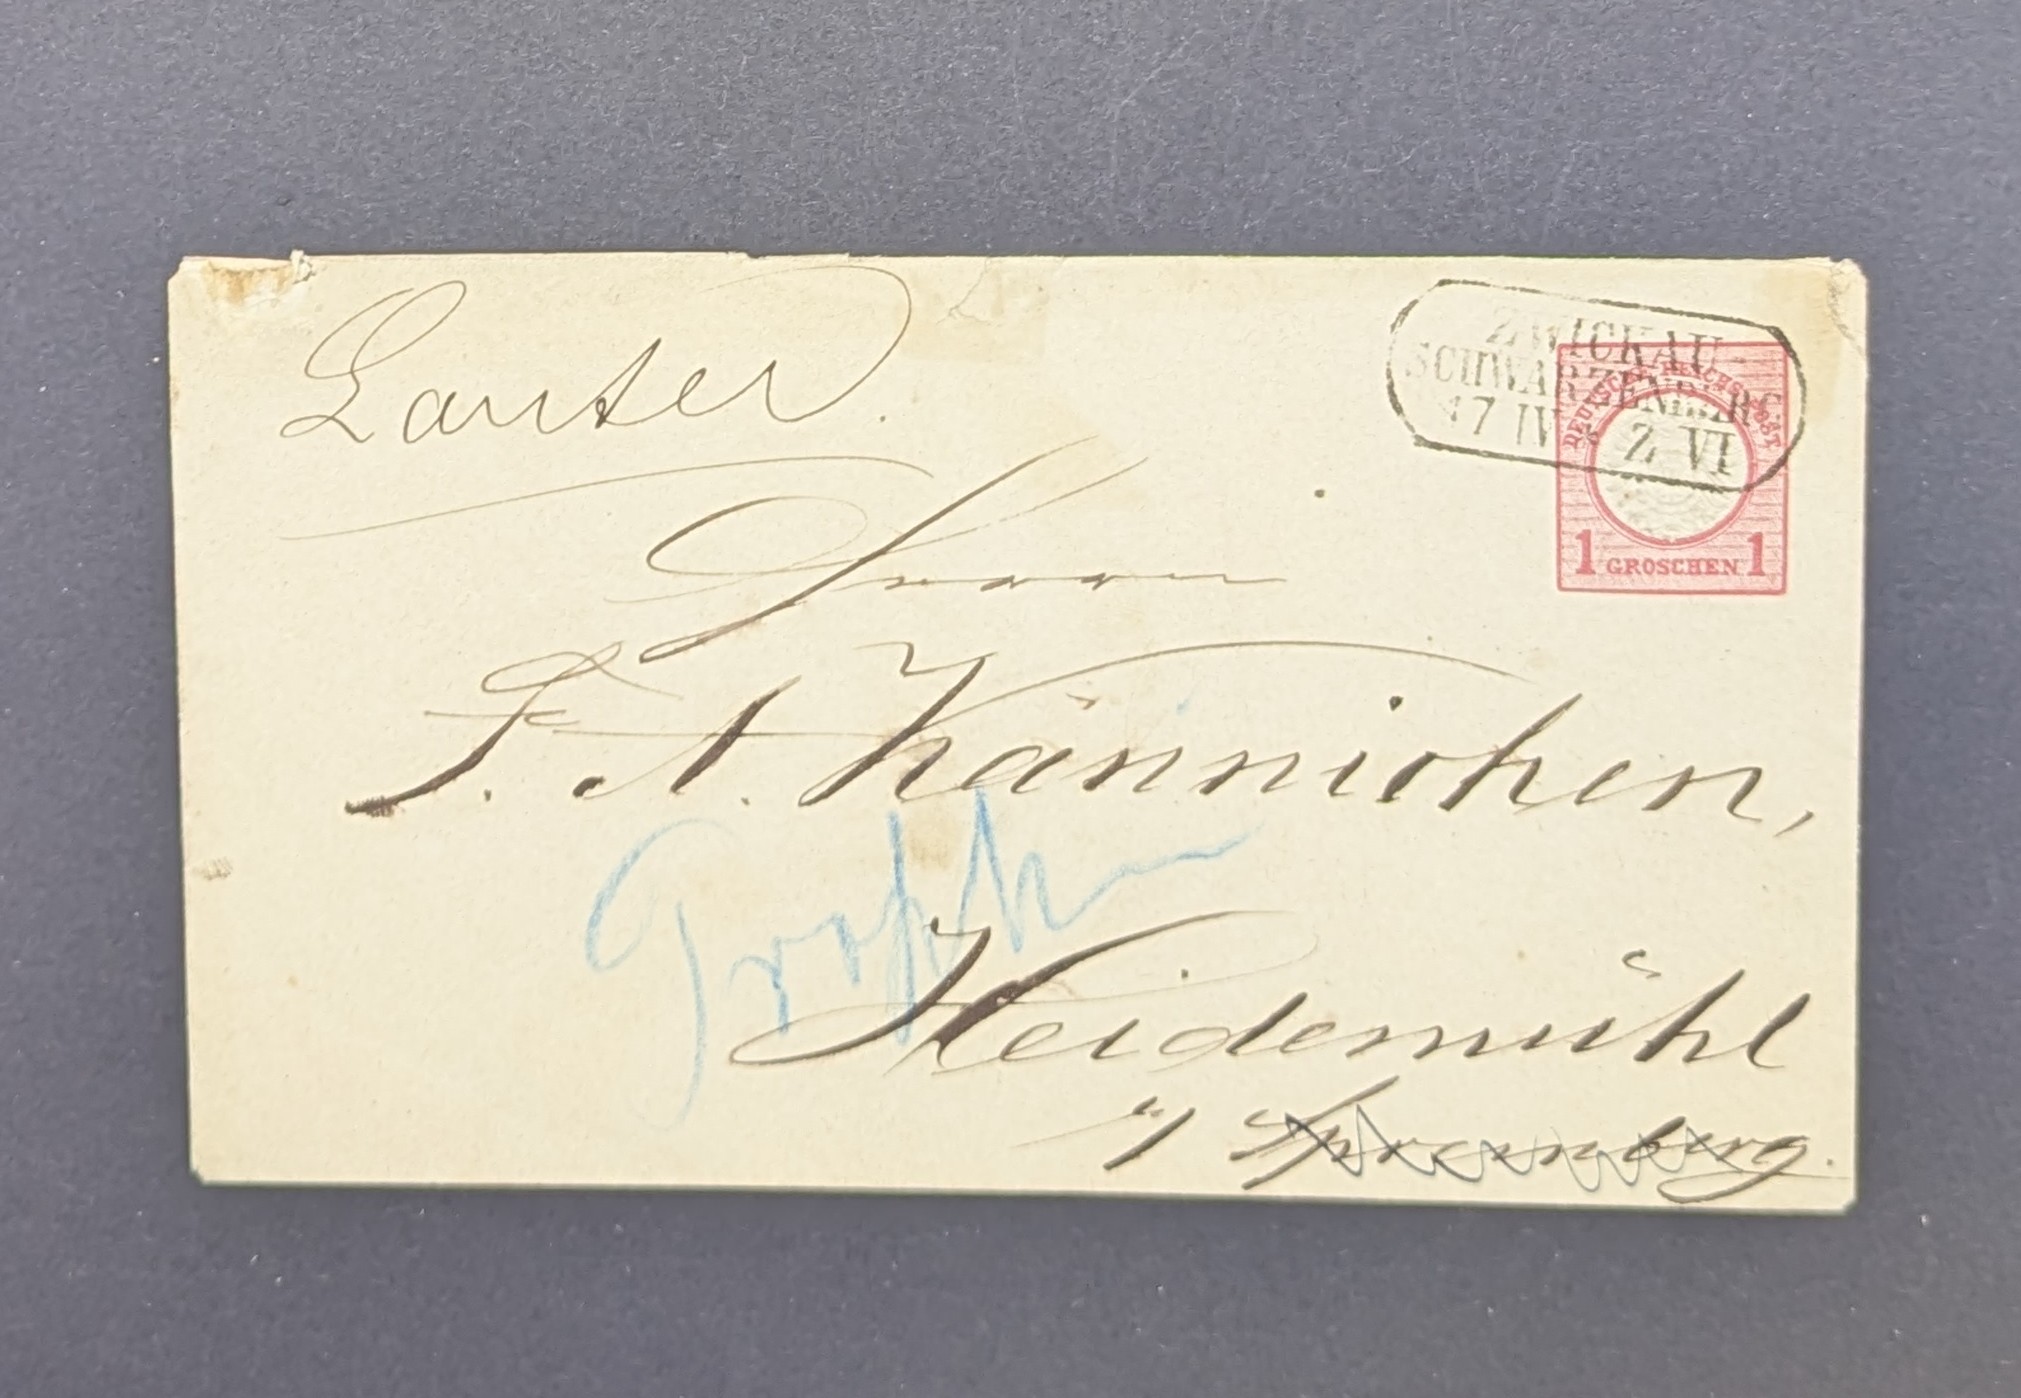 Lauter.
ZWICKAU-
SCHWARZENBERG
17 IV Z. VI
DEUTSCHE REICHS-POST
1 GROSCHEN 1
Herrn
F. A. Kännichen,
Heidemühl
Spremberg.